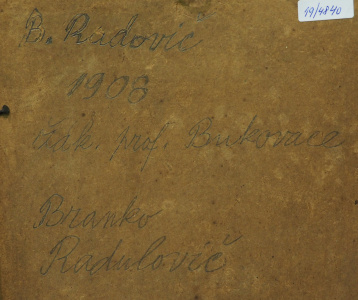 19/4840
B. Radović
1908
đak. prof. Bukovaca
Branko
Radulović